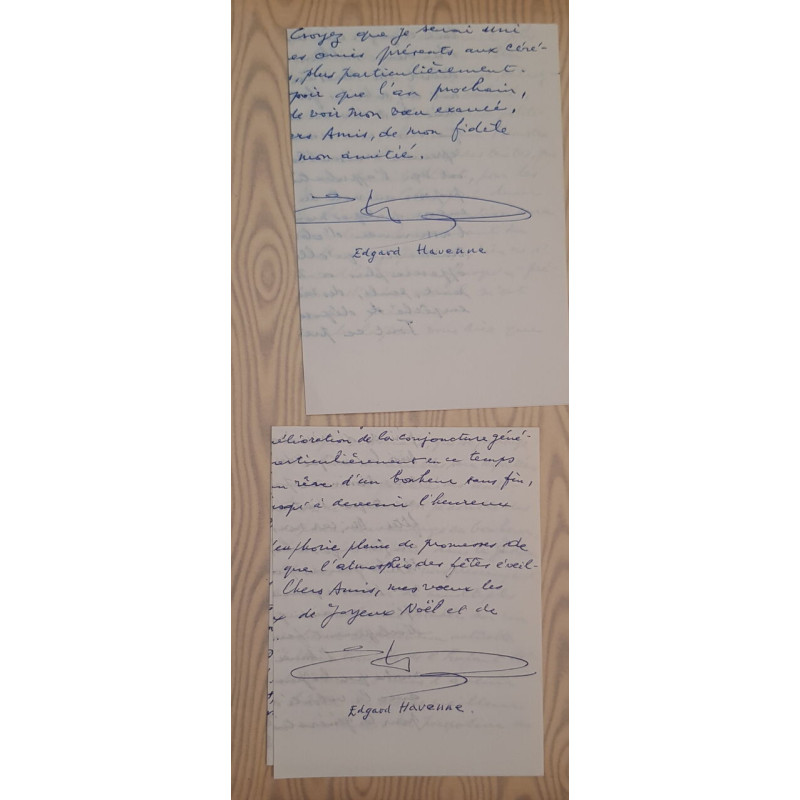 Croyez que je serai uni
es amis présents aux céré-
s, plus particulièrement.
poir que l'an prochain,
de voir mon vœu exaucé,
ers Amis, de mon fidèle
mon amitié.
Edgard Havenne
élioration de la conjoncture géné-
articulièrement en ce temps
n rêve d'un bonheur sans fin,
à devenir l'heureux
euphorie pleine de promesses
que l'atmosphère des fêtes éveil-
Chers Amis, mes vœux les
de Joyeux Noël et de
Edgard Havenne.